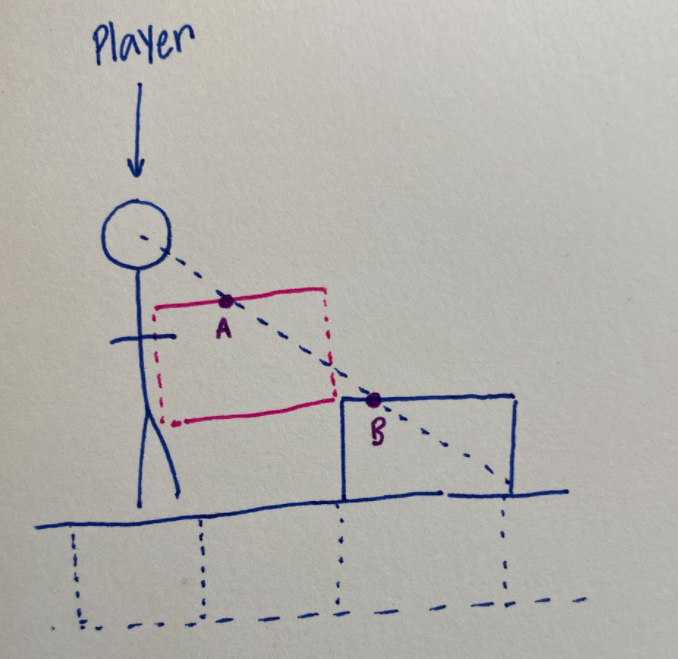 Player
A
B